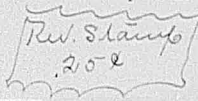 Rev. Stamp
.25¢